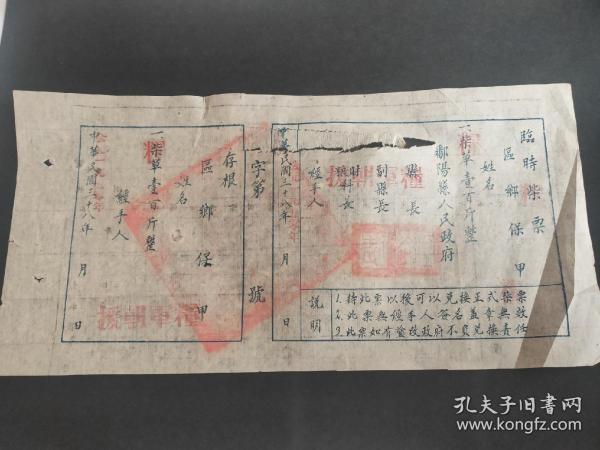 臨時柴票
區 鄉 保 甲
姓名
一、柴草壹百斤整
鄱陽縣人民政府
縣長
副縣長
財糧科長
經手人
中華民國三十八年 月 日
說明
1. 持此票以後可以兌換正式柴票
2. 此票無經手人簽名蓋章無效
3. 此票如有塗改政府不負兌換責任
字第 號
存根
區 鄉 保 甲
姓名
一、柴草壹百斤整
經手人
中華民國三十八年 月 日
孔夫子旧書网
www.kongfz.com